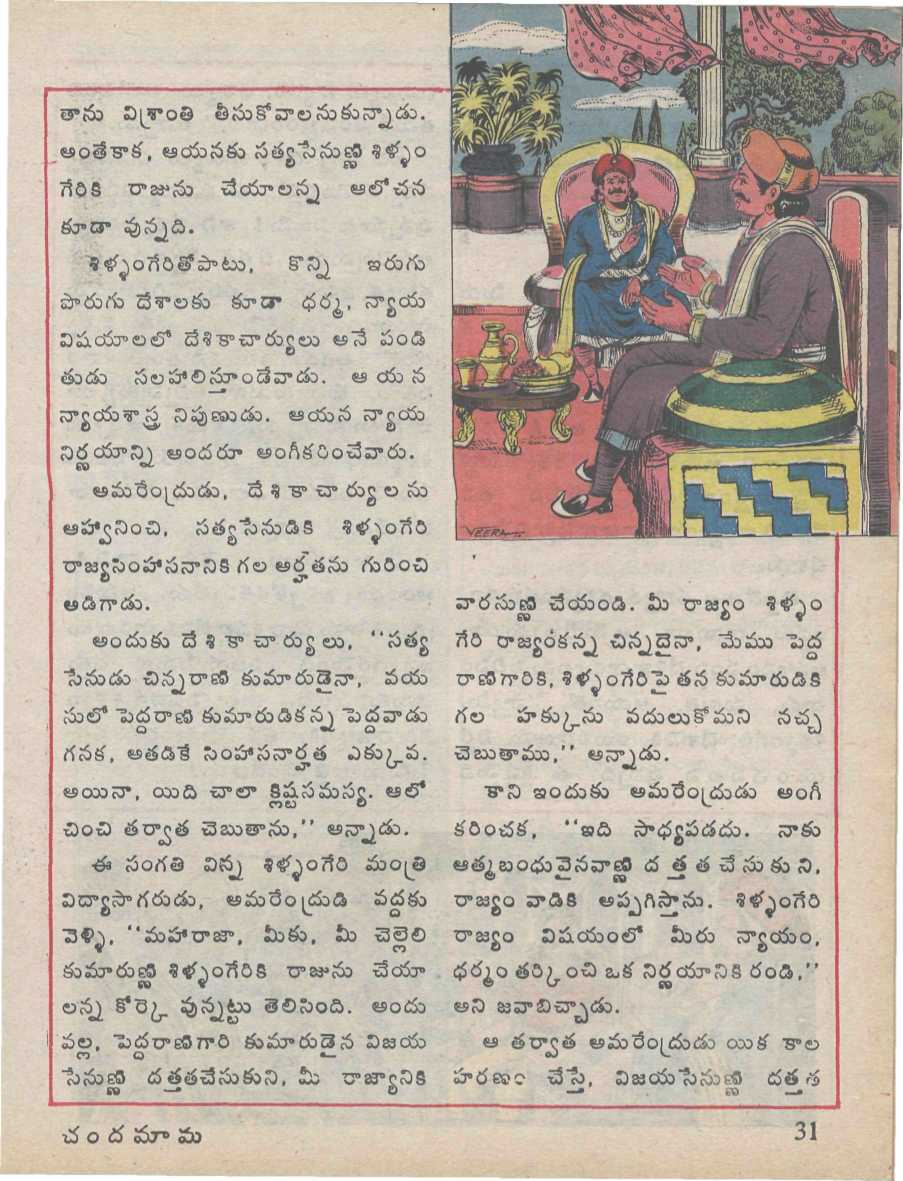 తాను విశ్రాంతి తీసుకోవాలనుకున్నాడు.
అంతేకాక, ఆయనకు సత్యసేనుణ్ణి శిళ్ళం
గేరికి రాజును చేయాలన్న ఆలోచన
కూడా వున్నది.
శిళ్ళంగేరితోపాటు, కొన్ని ఇరుగు
పొరుగు దేశాలకు కూడా ధర్మ, న్యాయ
విషయాలలో దేశికాచార్యులు అనే పండి
తుడు సలహాలిస్తూండేవాడు. ఆయన
న్యాయశాస్త్ర నిపుణుడు. ఆయన న్యాయ
నిర్ణయాన్ని అందరూ అంగీకరించేవారు.
అమరేంద్రుడు, దేశికాచార్యులను
ఆహ్వానించి, సత్యసేనుడికి శిళ్ళంగేరి
రాజ్యసింహాసనానికి గల అర్హతను గురించి
అడిగాడు.
అందుకు దేశికాచార్యులు, ‘‘సత్య
సేనుడు చిన్నరాణి కుమారుడైనా, వయ
సులో పెద్దరాణి కుమారుడికన్న పెద్దవాడు
గనక, అతడికే సింహాసనార్హత ఎక్కువ.
అయినా, యిది చాలా క్లిష్టసమస్య. ఆలో
చించి తర్వాత చెబుతాను,’’ అన్నాడు.
ఈ సంగతి విన్న శిళ్ళంగేరి మంత్రి
విద్యాసాగరుడు, అమరేంద్రుడి వద్దకు
వెళ్ళి, ‘‘మహారాజా, మీకు, మీ చెల్లెలి
కుమారుణ్ణి శిళ్ళంగేరికి రాజును చేయా
లన్న కోర్కె వున్నట్టు తెలిసింది. అందు
వల్ల, పెద్దరాణిగారి కుమారుడైన విజయ
సేనుణ్ణి దత్తతచేసుకుని, మీ రాజ్యానికి
VEERA
వారసుణ్ణి చేయండి. మీ రాజ్యం శిళ్ళం
గేరి రాజ్యంకన్న చిన్నదైనా, మేము పెద్ద
రాణిగారికి, శిళ్ళంగేరిపై తన కుమారుడికి
గల హక్కును వదులుకోమని నచ్చ
చెబుతాము,’’ అన్నాడు.
కాని ఇందుకు అమరేంద్రుడు అంగీ
కరించక, ‘‘ఇది సాధ్యపడదు. నాకు
ఆత్మబంధువైనవాణ్ణి దత్తత చేసుకుని,
రాజ్యం వాడికి అప్పగిస్తాను. శిళ్ళంగేరి
రాజ్యం విషయంలో మీరు న్యాయం,
ధర్మం తర్కించి ఒక నిర్ణయానికి రండి,’’
అని జవాబిచ్చాడు.
ఆ తర్వాత అమరేంద్రుడు యిక కాల
హరణం చేస్తే, విజయసేనుణ్ణి దత్తత
చందమామ
31